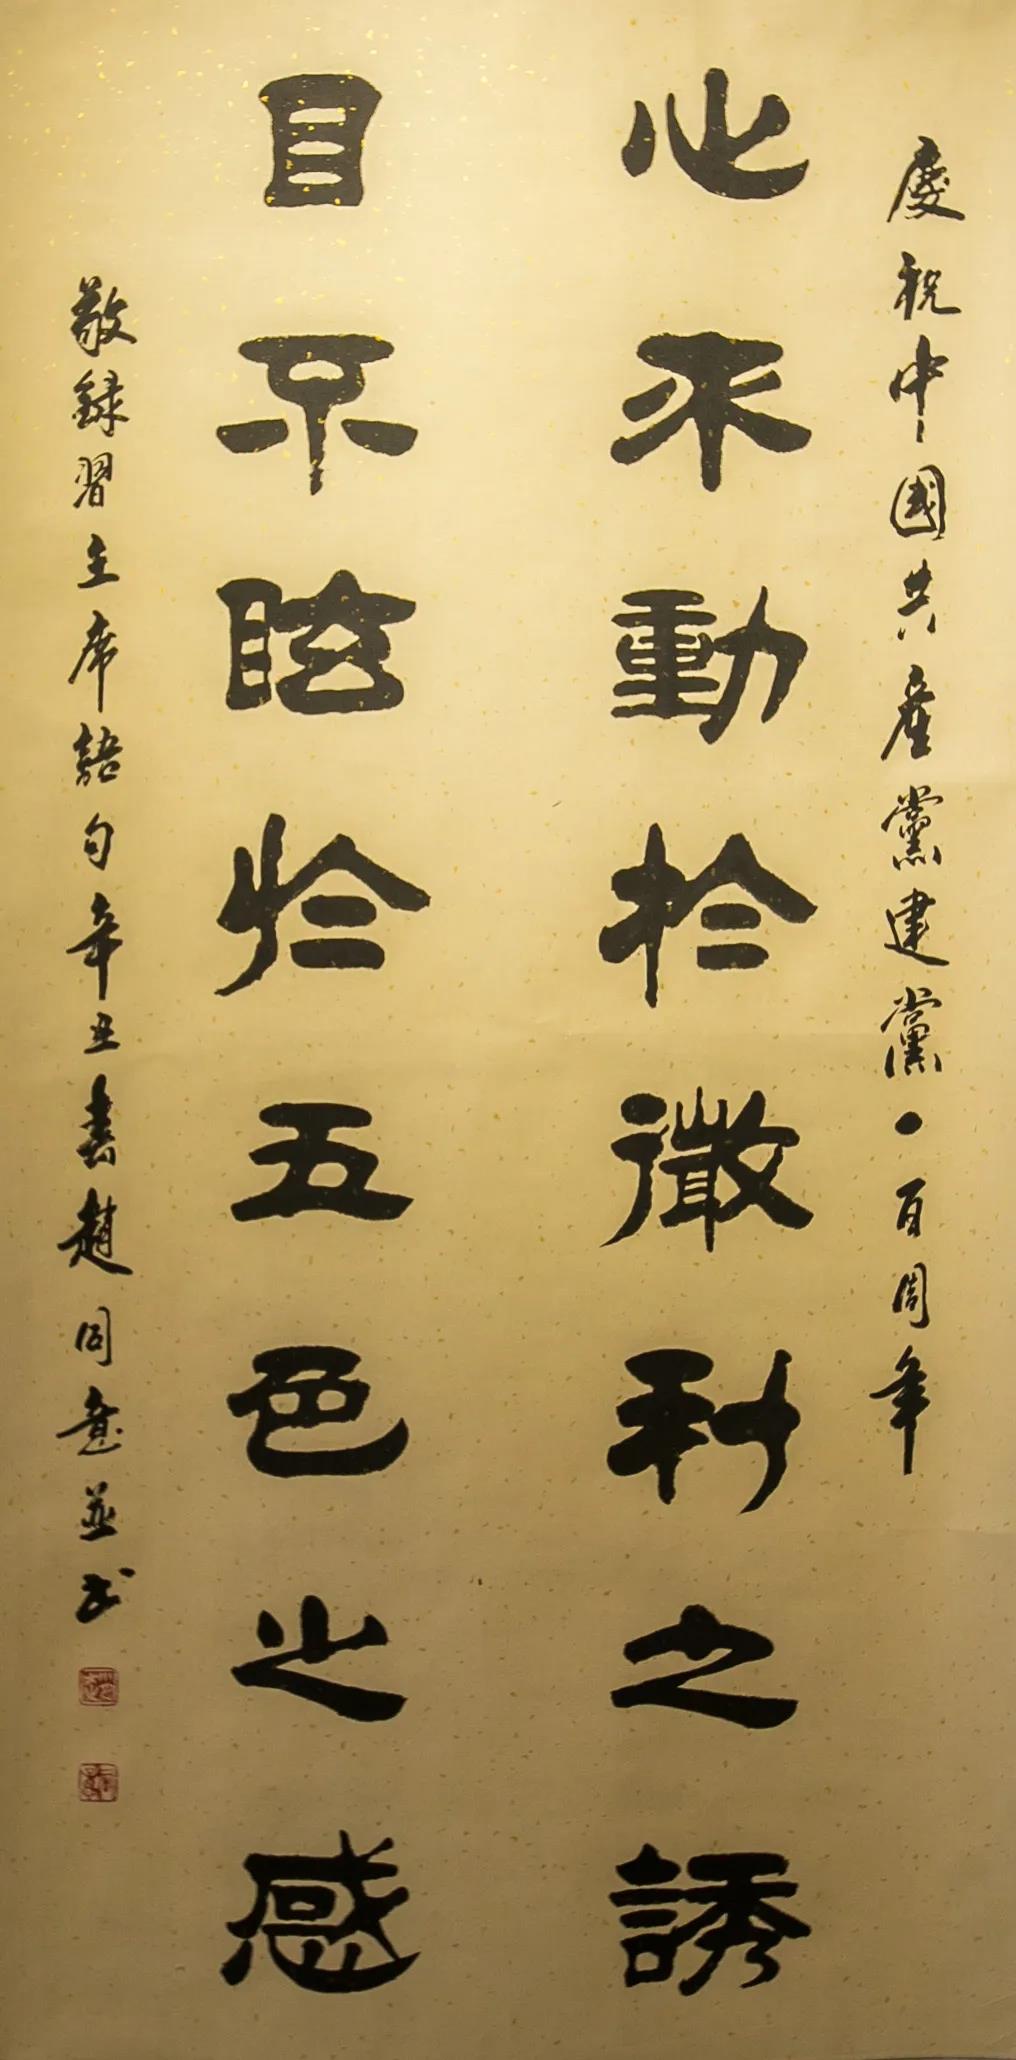 慶祝中國共產黨建黨一百周年
心不動於微利之誘
目不眩於五色之感
敬録習主席語句辛丑春趙同意並书